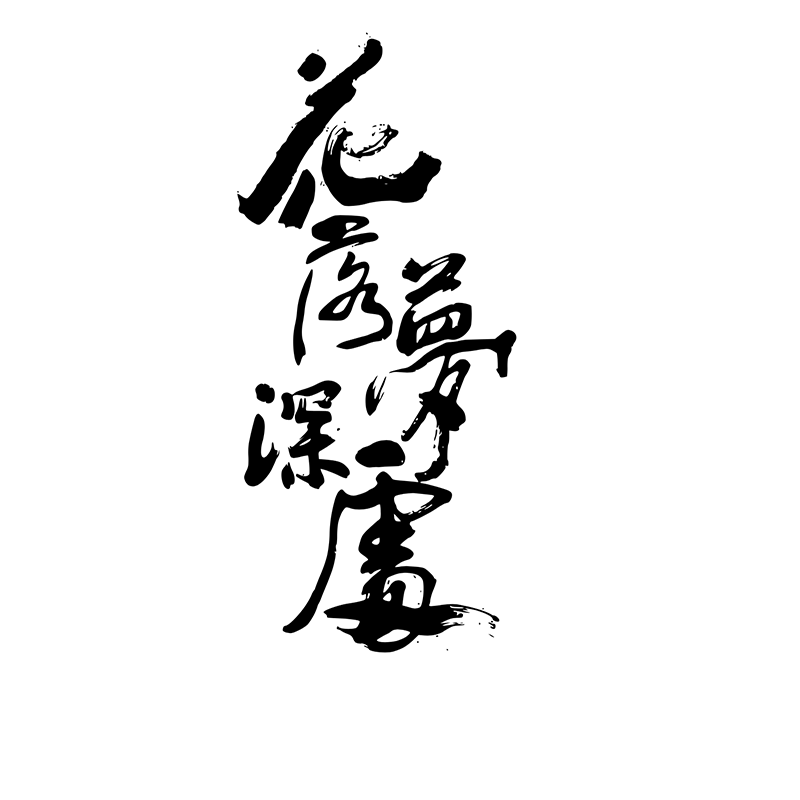 花落夢深處